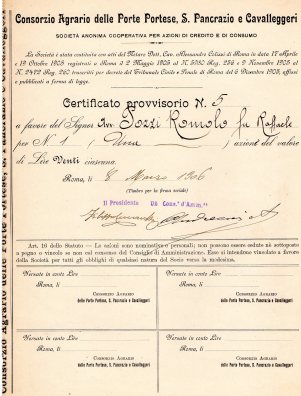 Consorzio Agrario delle Porte Portese, S. Pancrazio e Cavalleggeri
SOCIETÀ ANONIMA COOPERATIVA PER AZIONI DI CREDITO E DI CONSUMO
La Società è stata costituita con atti del Notaro Dott. Cav. Alessandro Colizzi di Roma in data 17 Aprile
e 19 Ottobre 1903 registrati a Roma il 2 Maggio 1903 al N. 5080 Reg. 254 e 9 Novembre 1903 al
N. 2472 Reg. 260 trascritti per decreto del Tribunale Civile e Penale di Roma del 6 Dicembre 1903, affissi
e pubblicati a forma di legge.
Certificato provvisorio N. 5
a favore del Signor Avv Pozzi Romolo fu Raffaele
per N 1 ( Una ) azioni del valore
di Lire Venti ciascuna.
Roma, li 8 Marzo 1906
(Timbro per la firma sociale)
Il Presidente Un Cons.e d'Amm.ne
Art. 16 dello Statuto — Le azioni sono nominative e personali; non possono essere cedute nè sottoposte
a pegno o vincolo se non col consenso del Consiglio di Amministrazione. Esse si intendono vincolate a favore
della Società per tutti gli obblighi di qualsiasi natura del Socio verso la medesima.
Versate in conto Lire
Roma, li
CONSORZIO AGRARIO
delle Porte Portese, S. Pancrazio e Cavalleggeri
Versate in conto Lire
Roma, li
CONSORZIO AGRARIO
delle Porte Portese, S. Pancrazio e Cavalleggeri
Versate in conto Lire
Roma, li
CONSORZIO AGRARIO
delle Porte Portese, S. Pancrazio e Cavalleggeri
Versate in conto Lire
Roma, li
CONSORZIO AGRARIO
delle Porte Portese, S. Pancrazio e Cavalleggeri
Consorzio Agrario delle Porte Portese, S. Pancrazio e Cavalleggeri